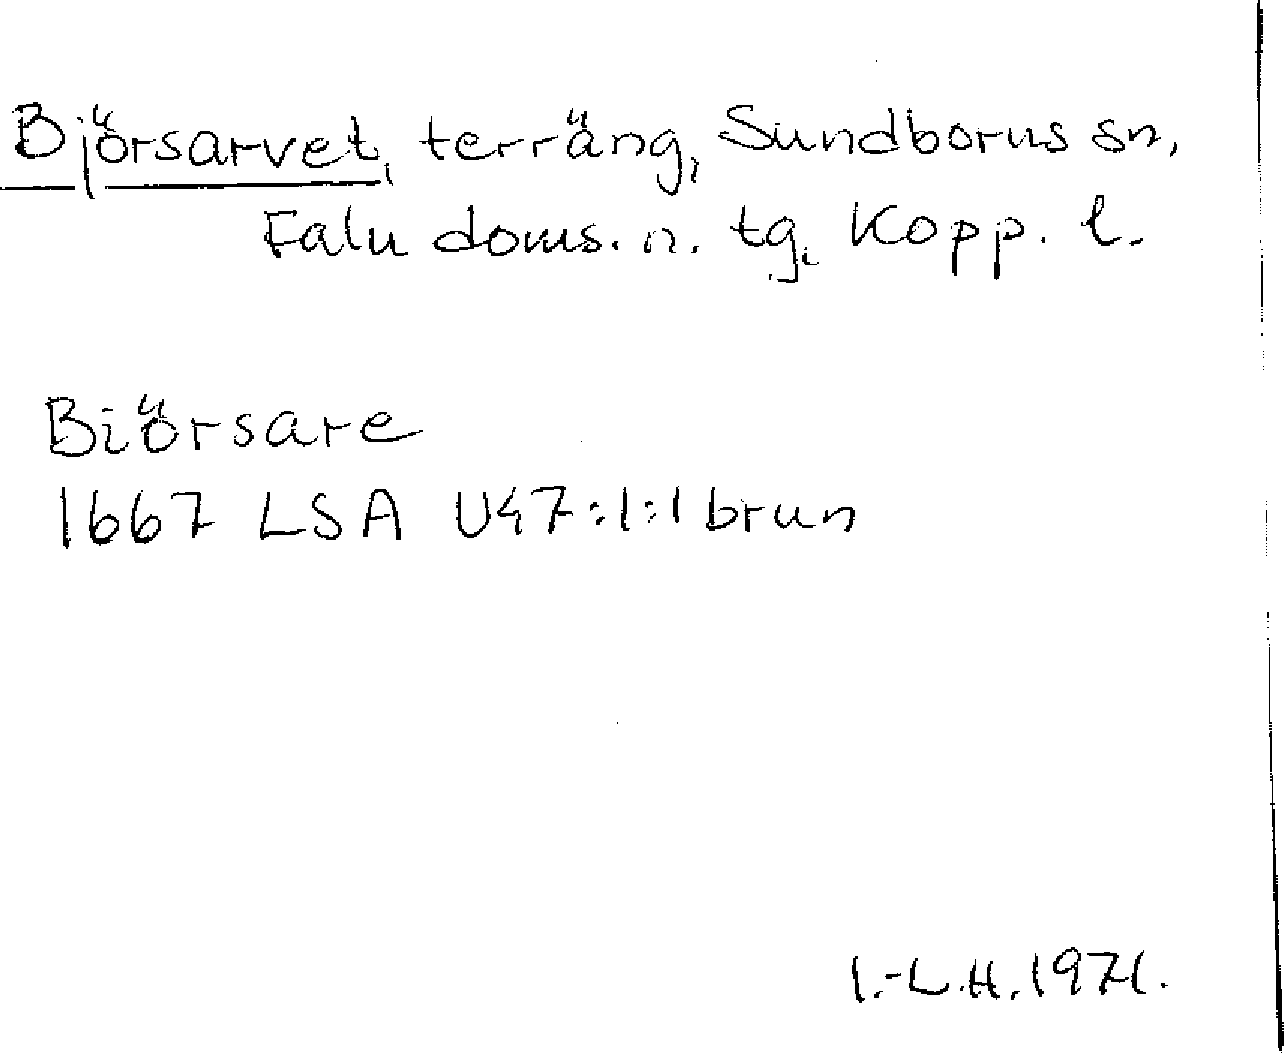 Björsarvet, terräng, Sundborns sn,
Falu doms. n. tg. Kopp. l.
Biörsare
1667 LSA U47:1:1 brun
I.-L.H. 1971.